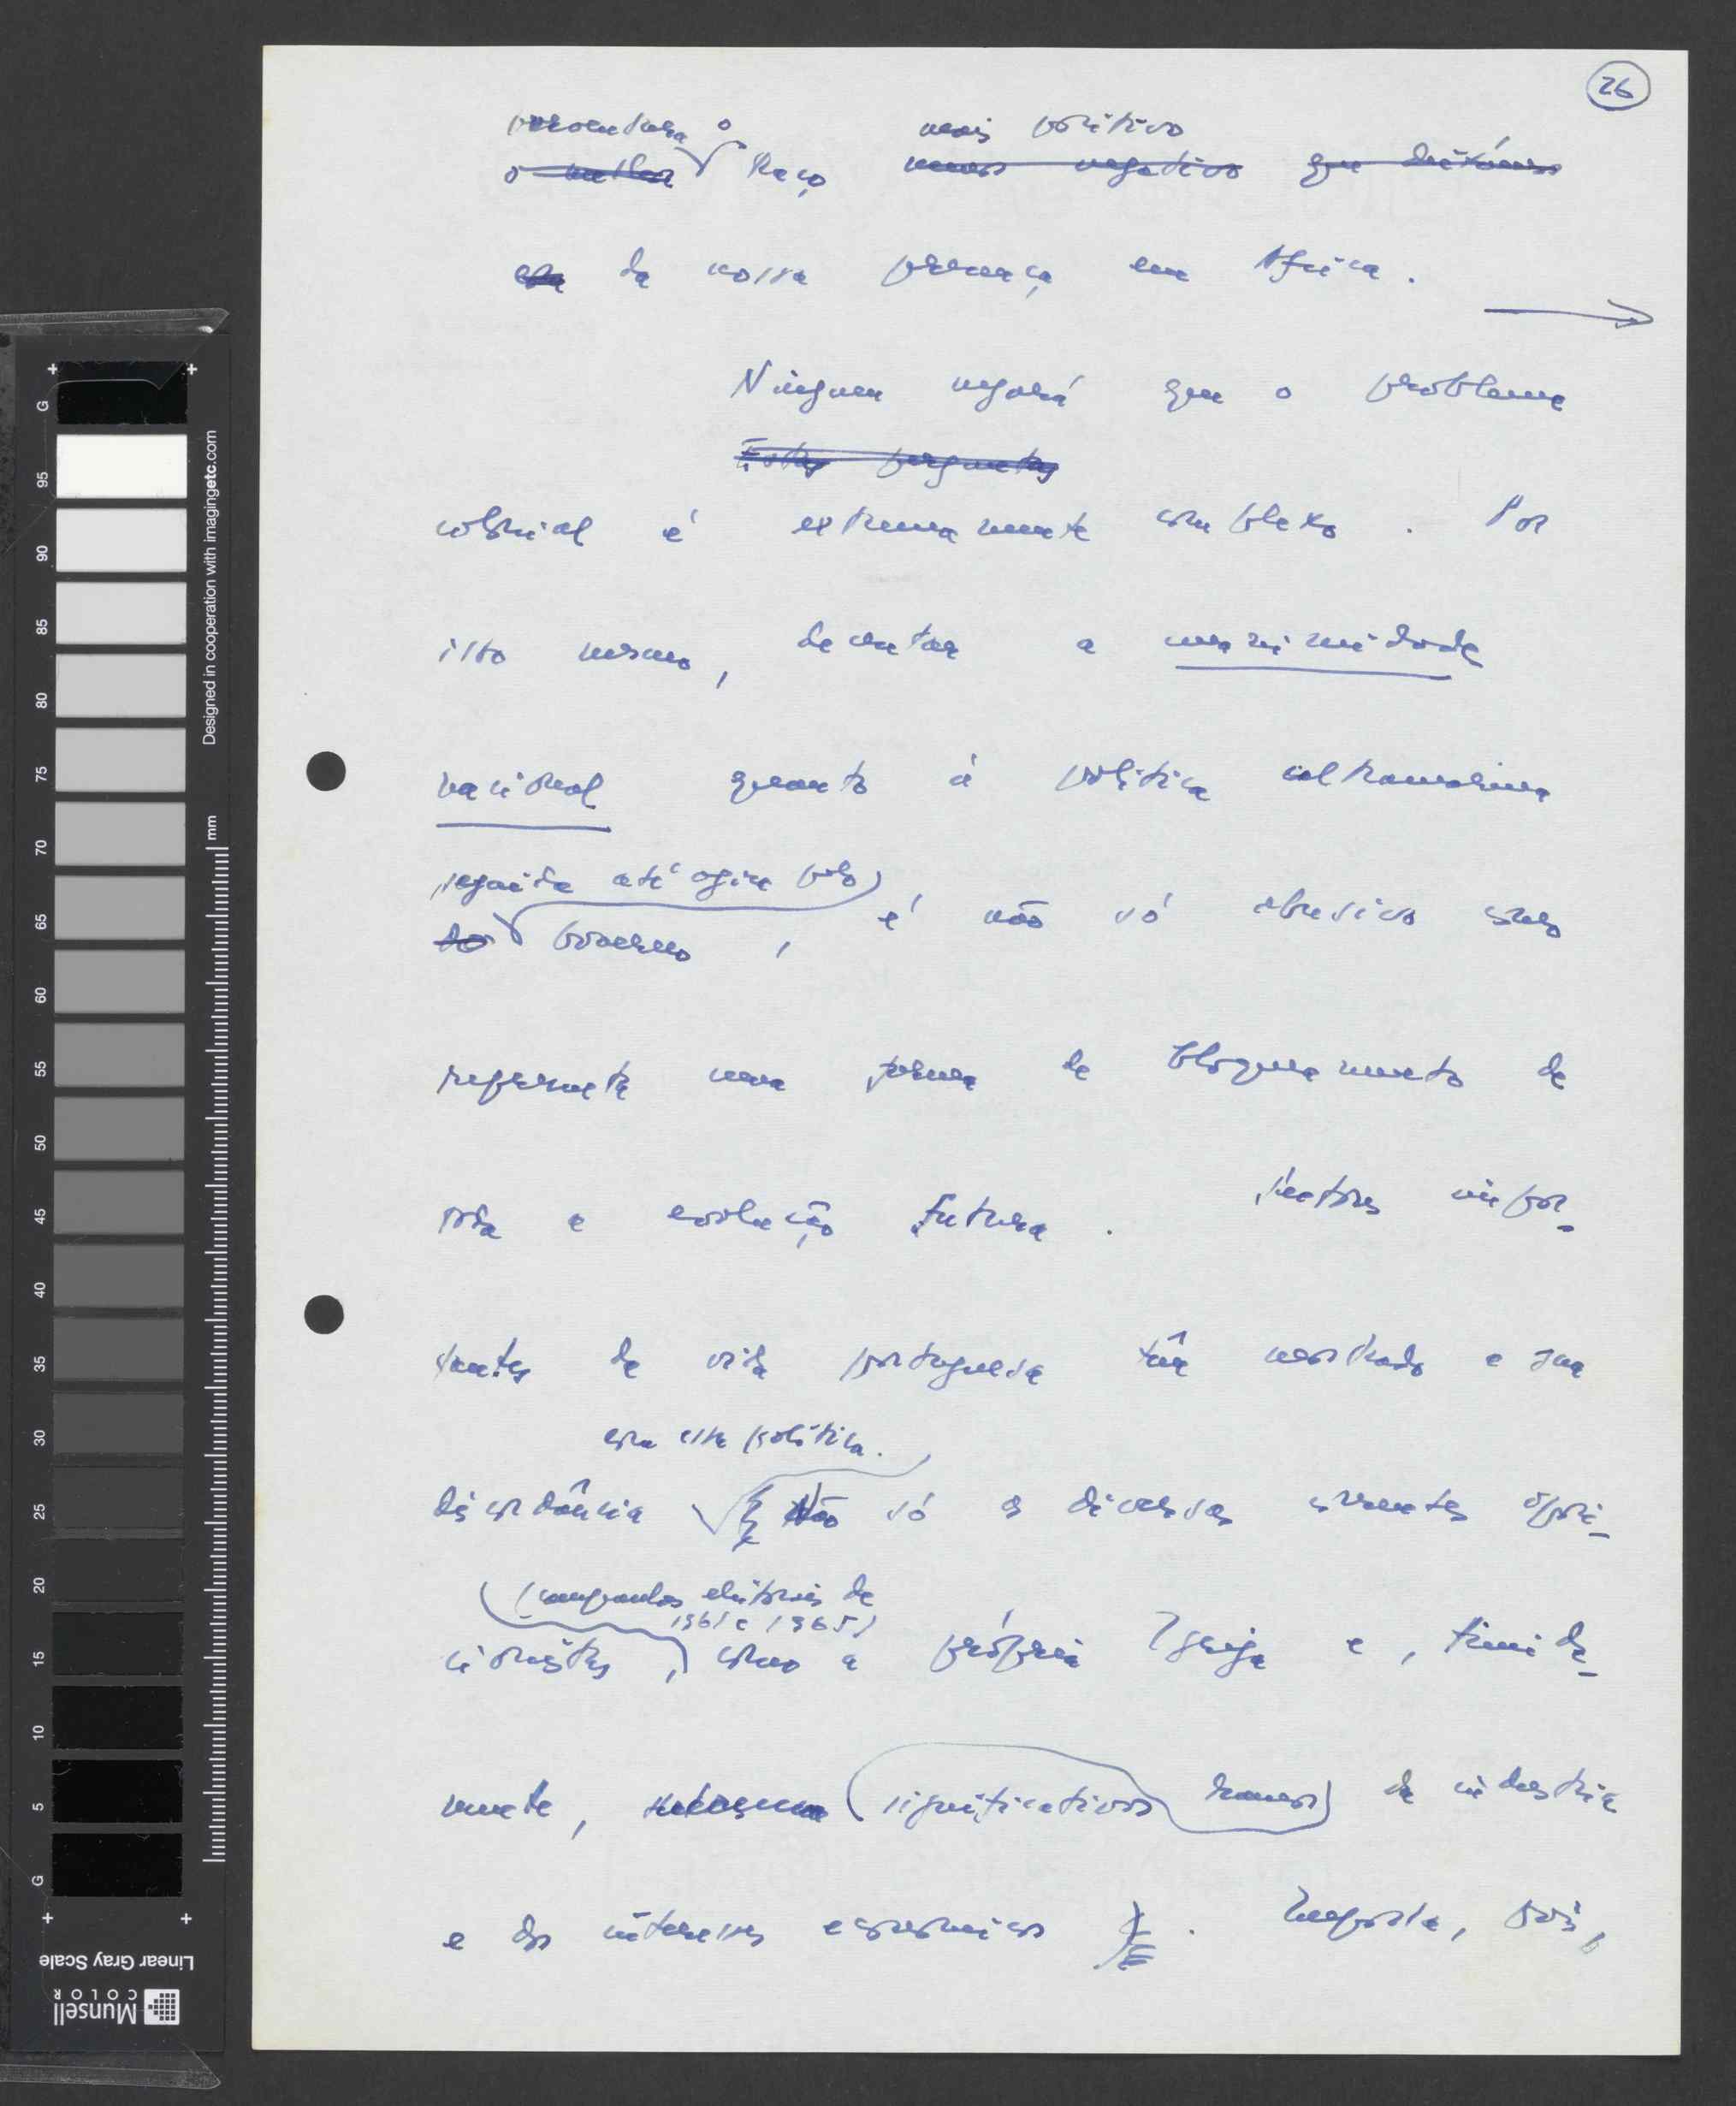 26
porventura o mais positivo
o melhor traço menos negativo que deixámos
da nossa presença em África.
Ninguem negará que o problema
Estas perguntas
colonial é extremamente complexo. Por
isso mesmo, decretar a unanimidade
nacional quanto à política ultramarina
seguida até agora pelo
do Governo, é não só abusivo como
representa uma forma de bloqueamento de
toda a evolução futura. Sectores impor-
tantes da vida portuguesa têm mostrado a sua
com essa política.
discordância Não só as diversas correntes oposi-
(campanhas eleitorais de
1961 e 1965)
cionistas, como a própria Igreja e, timida-
mente, significativos ramos da indústria
e dos interesses económicos. Importa, pois,
G
95
90
85
80
75
70
65
60
55
50
45
40
35
30
25
20
15
10
5
G
mm
Designed in cooperation with imagingetc.com
Linear Gray Scale
Munsell
COLOR